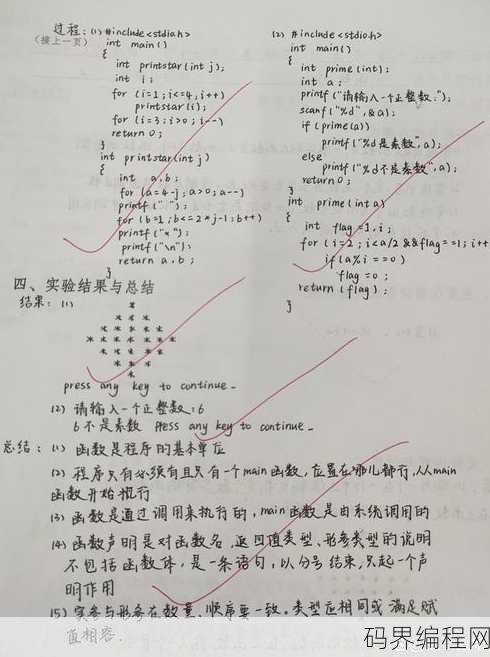 过程：(1) #include<stdio.h>
(接上一页)
int main()
{
int printstar(int j);
int i;
for (i=1; i<=4; i++)
printstar(i);
for (i=3; i>0; i--)
return 0;
}
int printstar(int j)
{
int a, b;
for (a=4-j; a>0; a--)
printf(" ");
for (b=1; b<=2*j-1; b++)
printf("*");
printf("\n");
return a, b;
}
(2) #include<stdio.h>
int main()
{
int prime(int);
int a;
printf("请输入一个正整数:");
scanf("%d", &a);
if (prime(a))
printf("%d是素数", a);
else
printf("%d不是素数", a);
return 0;
}
int prime(int a)
{
int flag=1, i;
for (i=2; i<a/2 && flag==1; i++
if (a%i==0)
flag=0;
return (flag);
}
四、实验结果与总结
结果：(1)
*
* * *
* * * * *
* * * * * * *
* * * * *
* * *
*
press any key to continue_
(2) 请输入一个正整数：6
6不是素数 Press any key to continue_
总结：(1) 函数是程序的基本单位
(2) 程序只有必须有且只有一个main函数，位置在哪儿都行，从main
函数开始执行
(3) 函数是通过调用来执行的，main函数是由系统调用的
(4) 函数声明是对函数名，返回值类型、形参类型的说明
不包括函数体，是一条语句，以分号结束，只起一个声
明作用
(5) 实参与形参在数量、顺序要一致。类型应相同或满足赋
值相容.
码界编程网